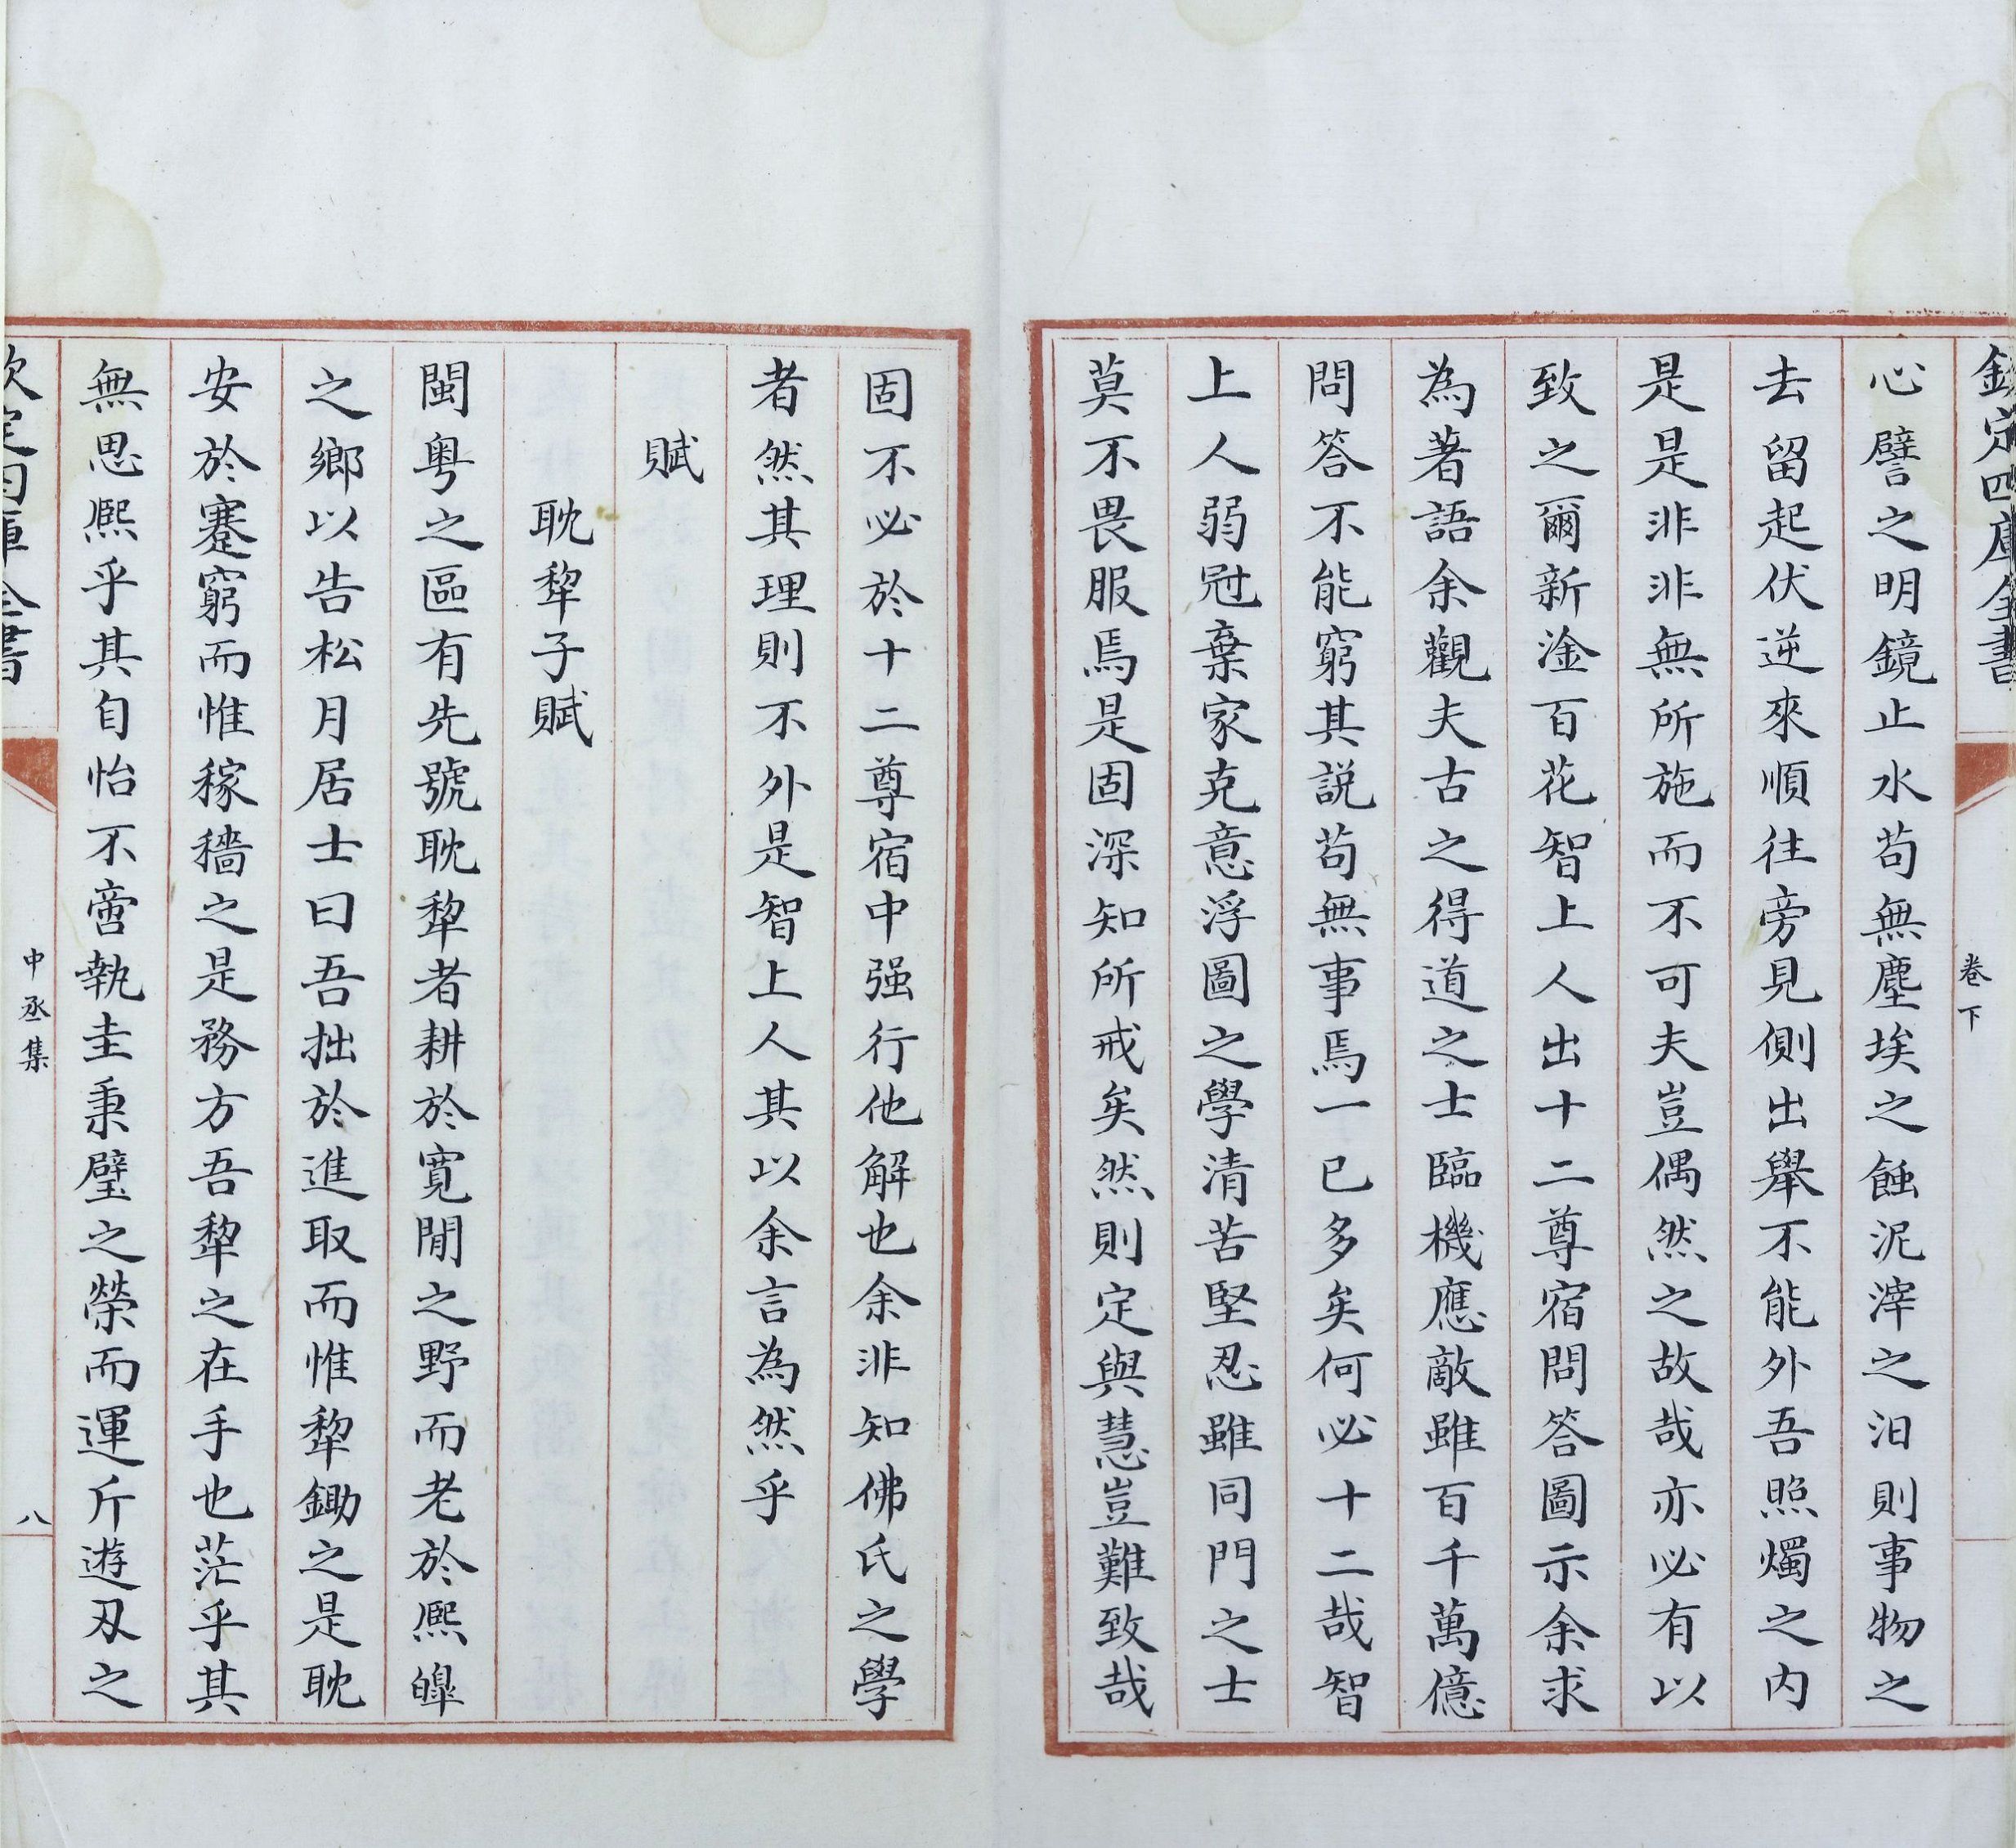 欽定四庫全書
卷下
心譬之明鏡止水苟無塵埃之蝕泥滓之汨則事物之
去留起伏逆來順往旁見側出舉不能外吾照燭之内
是是非非無所施而不可夫豈偶然之故哉亦必有以
致之爾新淦百花智上人出十二尊宿問答圖示余求
為著語余觀夫古之得道之士臨機應敵雖百千萬億
問答不能窮其説苟無事焉一已多矣何必十二哉智
上人弱冠棄家克意浮圖之學清苦堅忍雖同門之士
莫不畏服焉是固深知所戒矣然則定與慧豈難致哉
固不必於十二尊宿中强行他解也余非知佛氏之學
者然其理則不外是智上人其以余言為然乎
賦
耽犂子賦
閩粤之區有先號耽犂者耕於寛閒之野而老於熈皥
之鄉以告松月居士曰吾拙於進取而惟犂鋤之是耽
安於蹇窮而惟稼穡之是務方吾犂之在手也茫乎其
無思熈乎其自怡不啻執圭秉璧之榮而運斤遊刃之
欽定四庫全書
中丞集
八